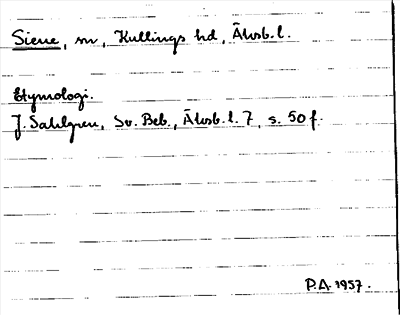 Siene, sn, Kullings hd, Älvsb. l.
Etymologi.
J. Sahlgren, Sv. Beb., Älvsb. l. 7, s. 50 f.
P.A. 1957.